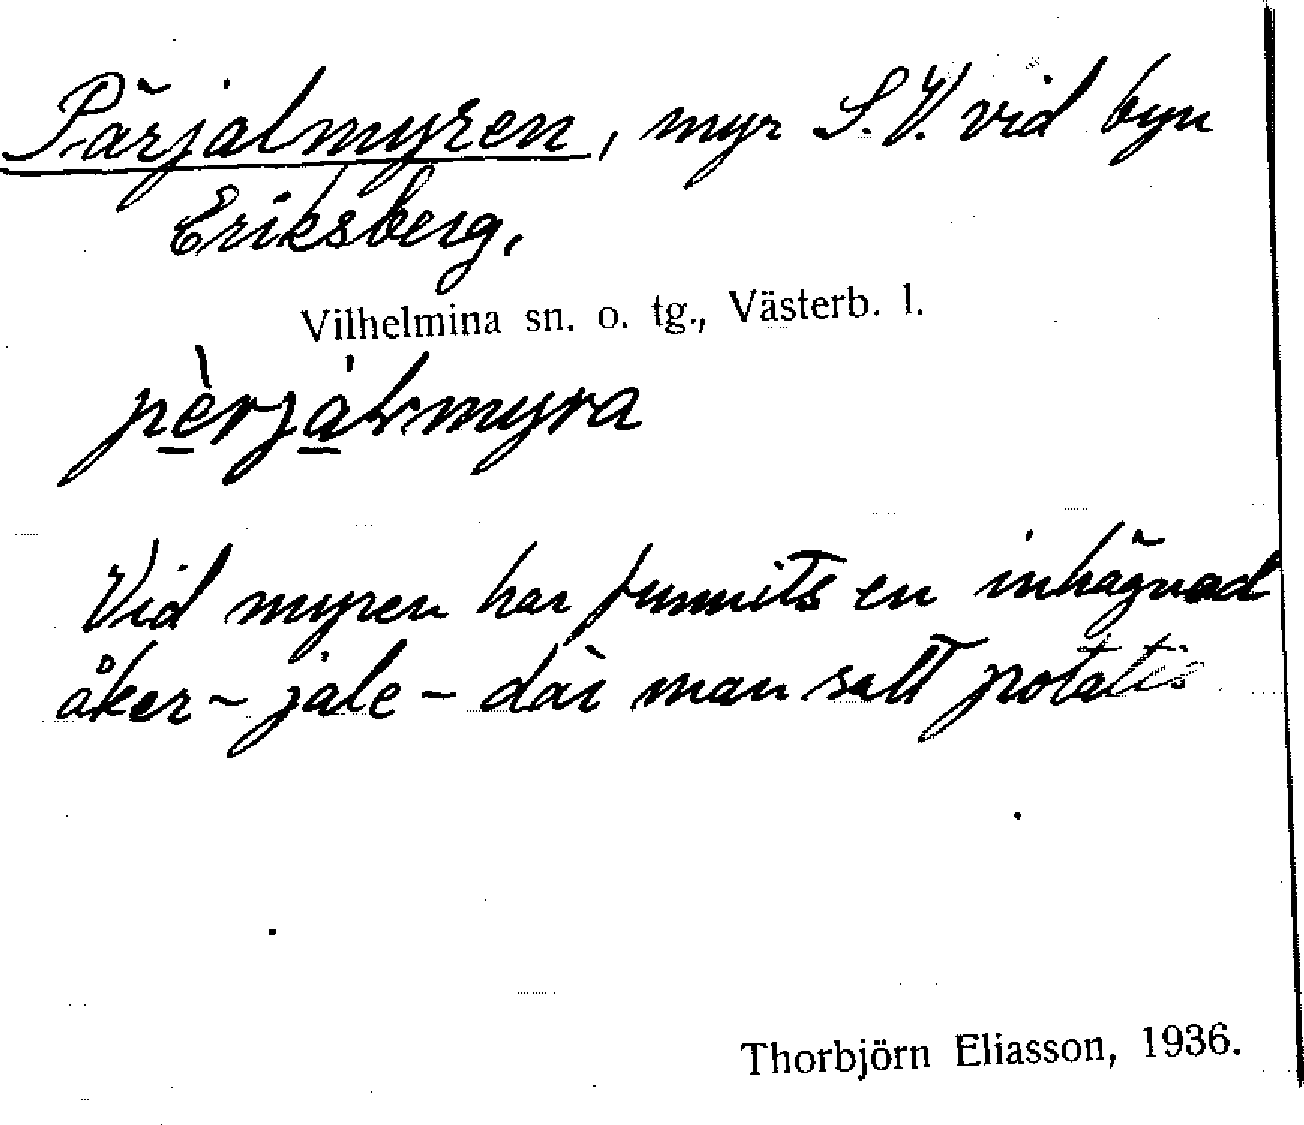 Pärjalmyren, myr S.V. vid byn
Eriksberg.
Vilhelmina sn. o. tg., Västerb. l.
pèrjálmyra
Vid myren har funnits en inhägnad
åker - jale - där man satt potatis
Thorbjörn Eliasson, 1936.